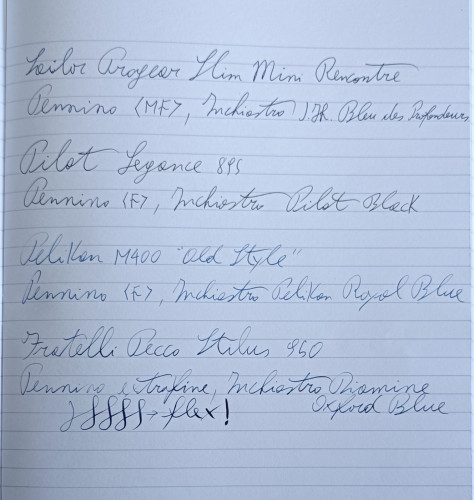 Sailor Progear Slim Mini Rencontre
Pennino <MF>, Inchiostro J.H. Bleu des Profondeurs
Pilot Legance 89s
Pennino <F>, Inchiostro Pilot Black
Pelikan M400 "Old Style"
Pennino <F>, Inchiostro Pelikan Royal Blue
Fratelli Recco Stilus 950
Pennino extrafine, Inchiostro Diamine
Oxford Blue
→ flex!